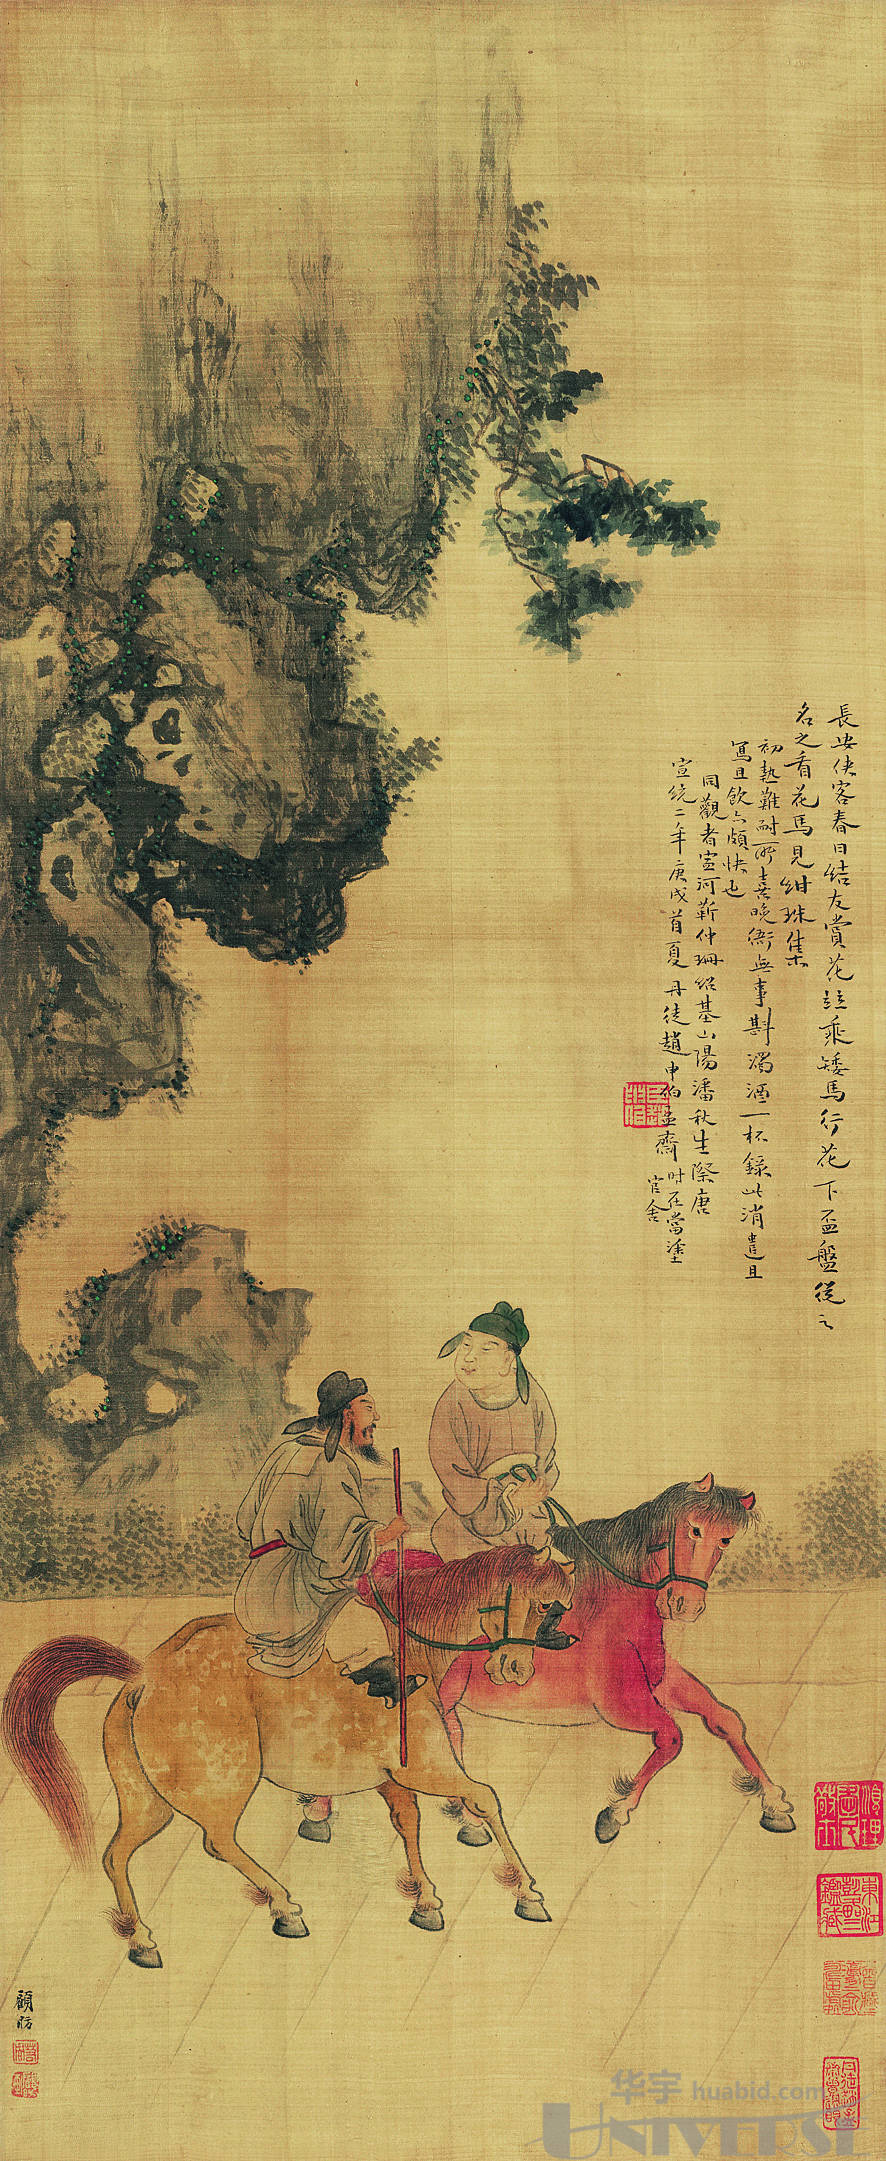 長安俠客春日結友賞花並乘矮馬行花下盃盤從之
名之看花馬見紺珠集
初熱難耐所喜晚衙無事斟濁酒一杯錄此消遣且
寫且飲亦頗快也
同觀者宣河靳仲珊紹基山陽潘秋生際唐
宣統二年庚戌首夏丹徒趙申伯孟齋時在當塗
官舍
顧昉
東江彭
鑑藏
华宇 huabid.com
UNIVERSE